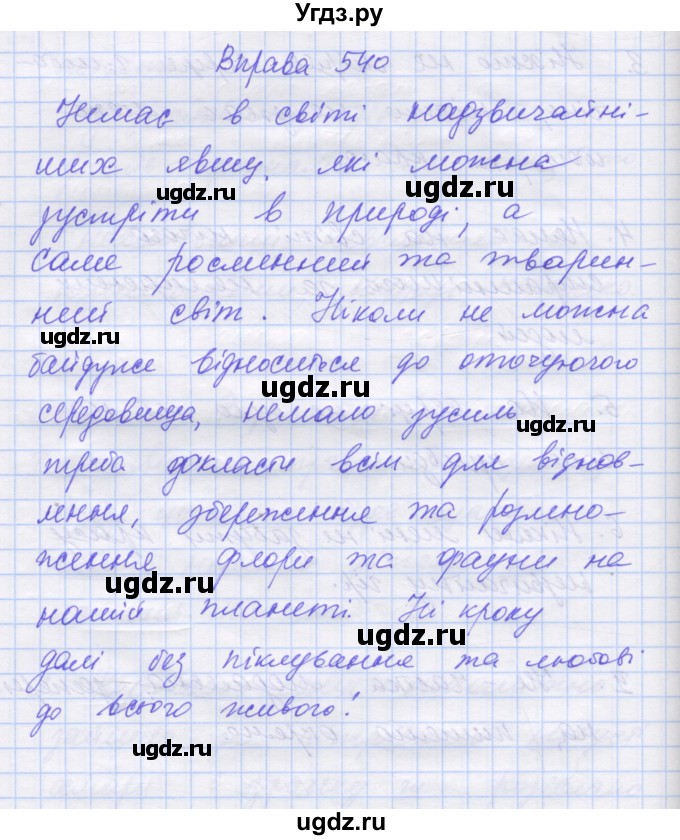 Угдз.ру
Вправа 540
Немає в світі надзвичайні-
ших явищ, які можна
зустріти в природі, а
саме рослинний та тварин-
ний світ. Ніколи не можна
байдуже відноситься до оточуючого
середовища, немало зусиль
треба докласти всім для віднов-
лення, збереження та розмно-
ження флори та фауни на
нашій планеті. Ні кроку
далі без піклування та любові
до всього живого!
ugdz.ru
ugdz.ru
ugdz.ru
ugdz.ru
ugdz.ru
ugdz.ru
ugdz.ru
ugdz.ru
ugdz.ru
ugdz.ru
ugdz.ru